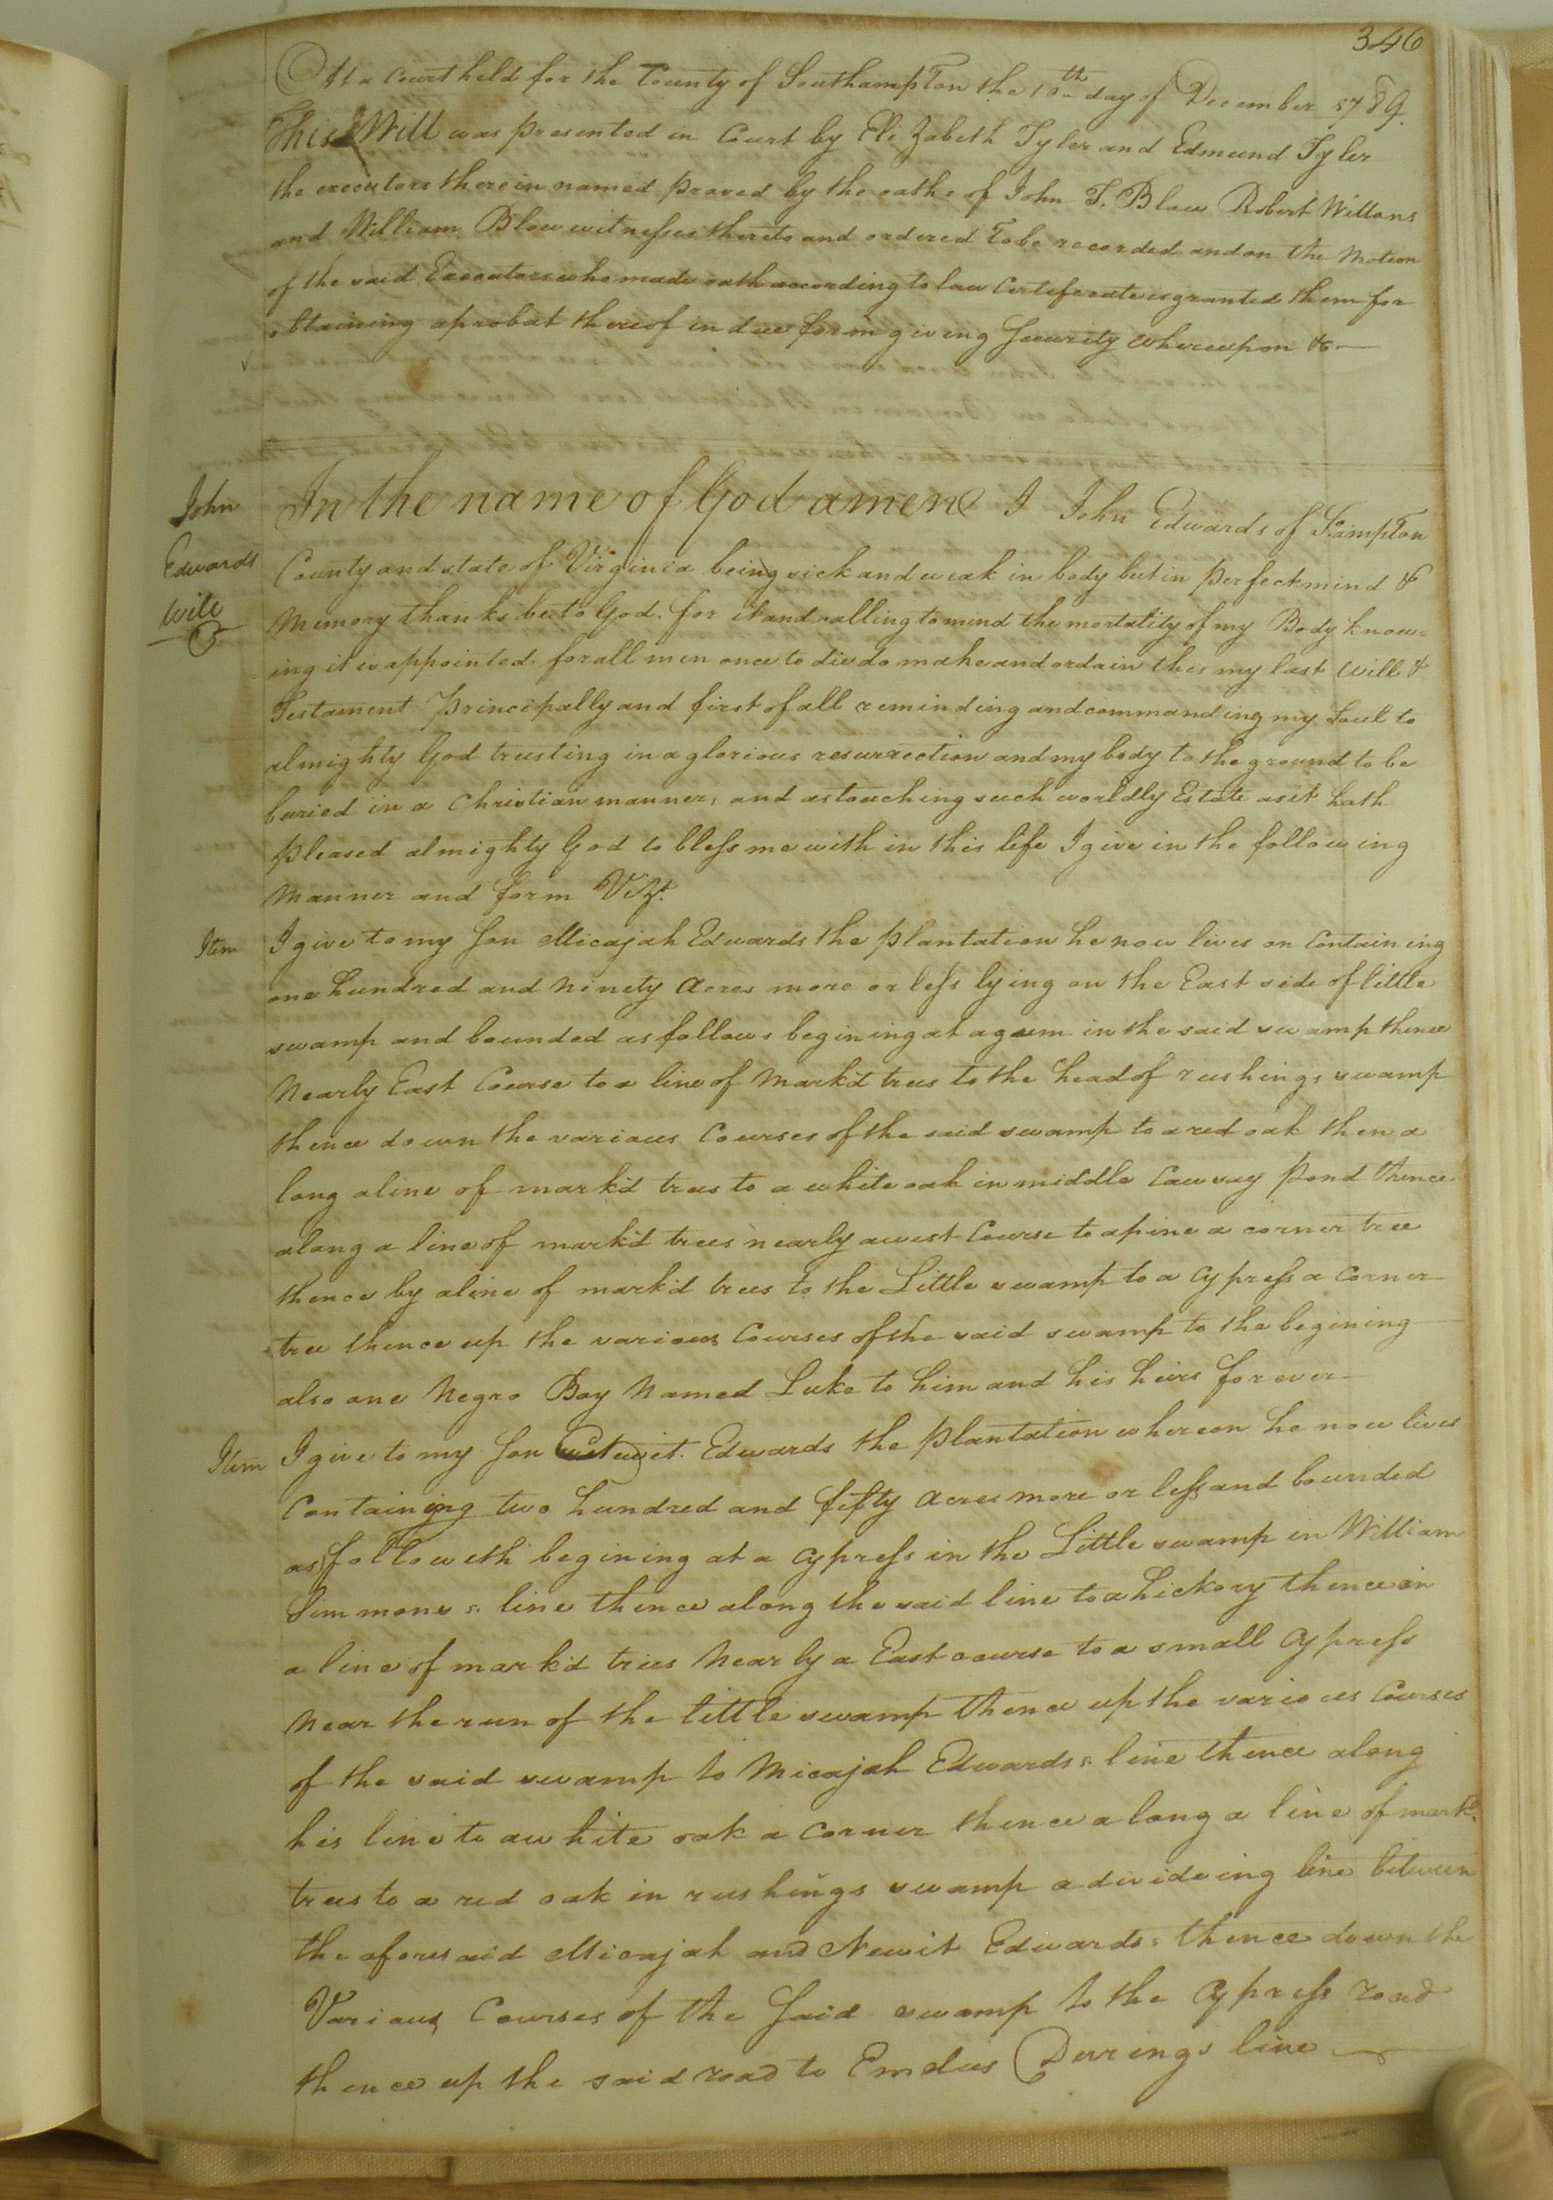 346
At a Court held for the County of Southampton the 10th day of December 1789.
This Will was presented in Court by Elizabeth Tyler and Edmund Tyler
the executors therein named proved by the oaths of John T. Blow Robert
and William Blow witnesses thereto and ordered To be recorded and on the Motion
of the said Executors who made oath according to law Certificate is granted them for
obtaining a probat thereof in due form giving Security whereupon &c
John
Edwards
Will
In the name of God amen I John Edwards of S.ampton
County and state of Virginia being sick and weak in body but in perfect mind &
Memory thanks be to God. for it and calling to mind the mortality of my Body know=
ing it is appointed for all men once to die do make and ordain this my last Will &
Testament Principally and first of all reminding and commanding my Soul to
almighty God trusting in a glorious resurrection and my body to the ground to be
buried in a Christian manner, and as touching such worldly Estate as it hath
pleased almighty God to bless me with in this life I give in the following
Manner and form Vizt.
Item I give to my Son Micajah Edwards the plantation he now lives on Containing
one hundred and Ninety Acres more or less lying on the East side of little
swamp and bounded as follows begining at a gum in the said swamp thence
Nearly East Course to a line of mark'd trees to the head of rushings swamp
thence down the various Courses of the said swamp to a red oak then a
long a line of mark'd trees to a white oak in middle Cawsay Pond thence
along a line of mark'd trees nearly a west Course to a pine a corner tree
thence by a line of mark'd trees to the Little swamp to a Cypress a Corner
tree thence up the various Courses of the said swamp to the begining
also one Negro Boy Named Luke to him and his heirs for ever
Item I give to my Son Edwards the plantation whereon he now lives
Containing two hundred and fifty Acres more or less and bounded
as followeth begining at a Cypress in the Little swamp in William
Simmons s. line thence along the said line to a hickory thence in
a line of mark'd trees Nearly a East course to a small Cypress
Near the run of the little swamp thence up the various Courses
of the said swamp to Micajah Edwards s. line thence along
his line to a white oak a Corner thence along a line of mark.
trees to a red oak in rushings swamp a divideing line between
the aforesaid Micajah and Newit Edwards s thence down the
Various Courses of the Said swamp to the Cypress road
thence up the said road to Emelus Derrings line